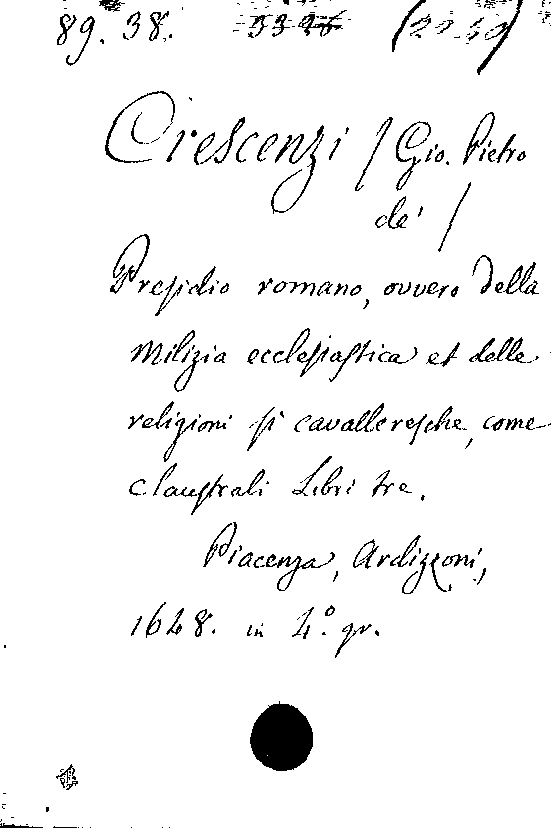 89. 38.
Crescenzi / Gio. Pietro
de' /
Presidio romano, ovvero della
Milizia ecclesiastica et delle
religioni sì cavalleresche, come
claustrali Libri tre.
Piacenza, Ardizzoni,
1648. in 4º. gr.